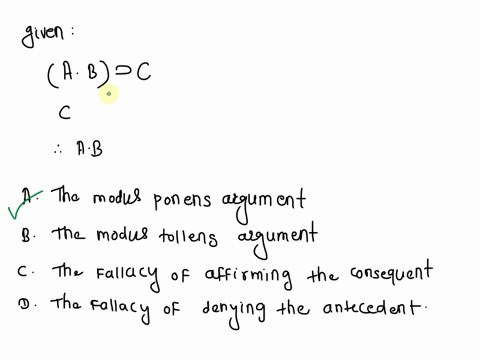 given:
(A · B) ⊃ C
C
∴ A·B
A. The modus ponens argument
B. The modus tollens argument
C. The Fallacy of affirming the consequent
D. The Fallacy of denying the antecedent.